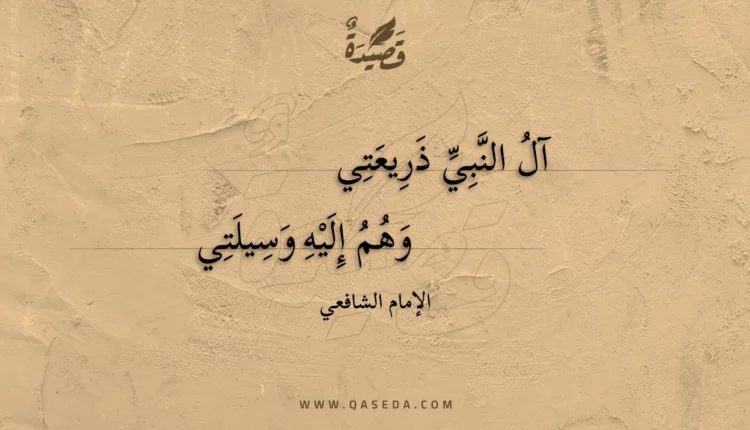 قَصِيدَةٌ
آلُ النَّبِيِّ ذَرِيعَتِي
وَهُمُ إِلَيْهِ وَسِيلَتِي
الإمام الشافعي
WWW.QASEDA.COM